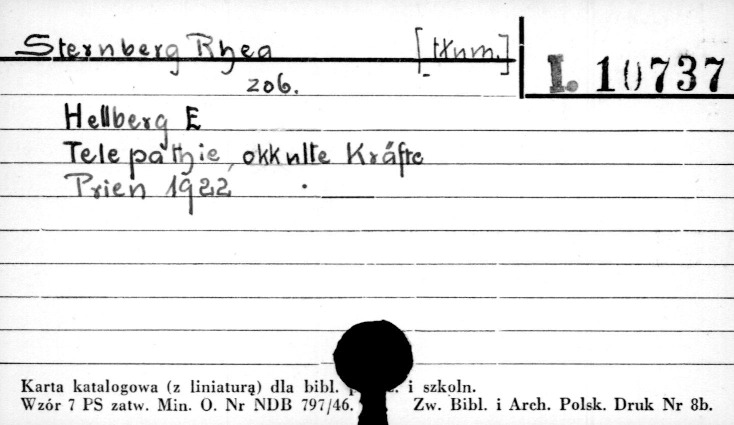 Sternberg Rhea [tłum.]
I. 10737
zob.
Hellberg E
Telepathie, okkulte Kräfte
Prien 1922
Karta katalogowa (z liniaturą) dla bibl. i szkoln.
Wzór 7 PS zatw. Min. O. Nr NDB 797/46. Zw. Bibl. i Arch. Polsk. Druk Nr 8b.